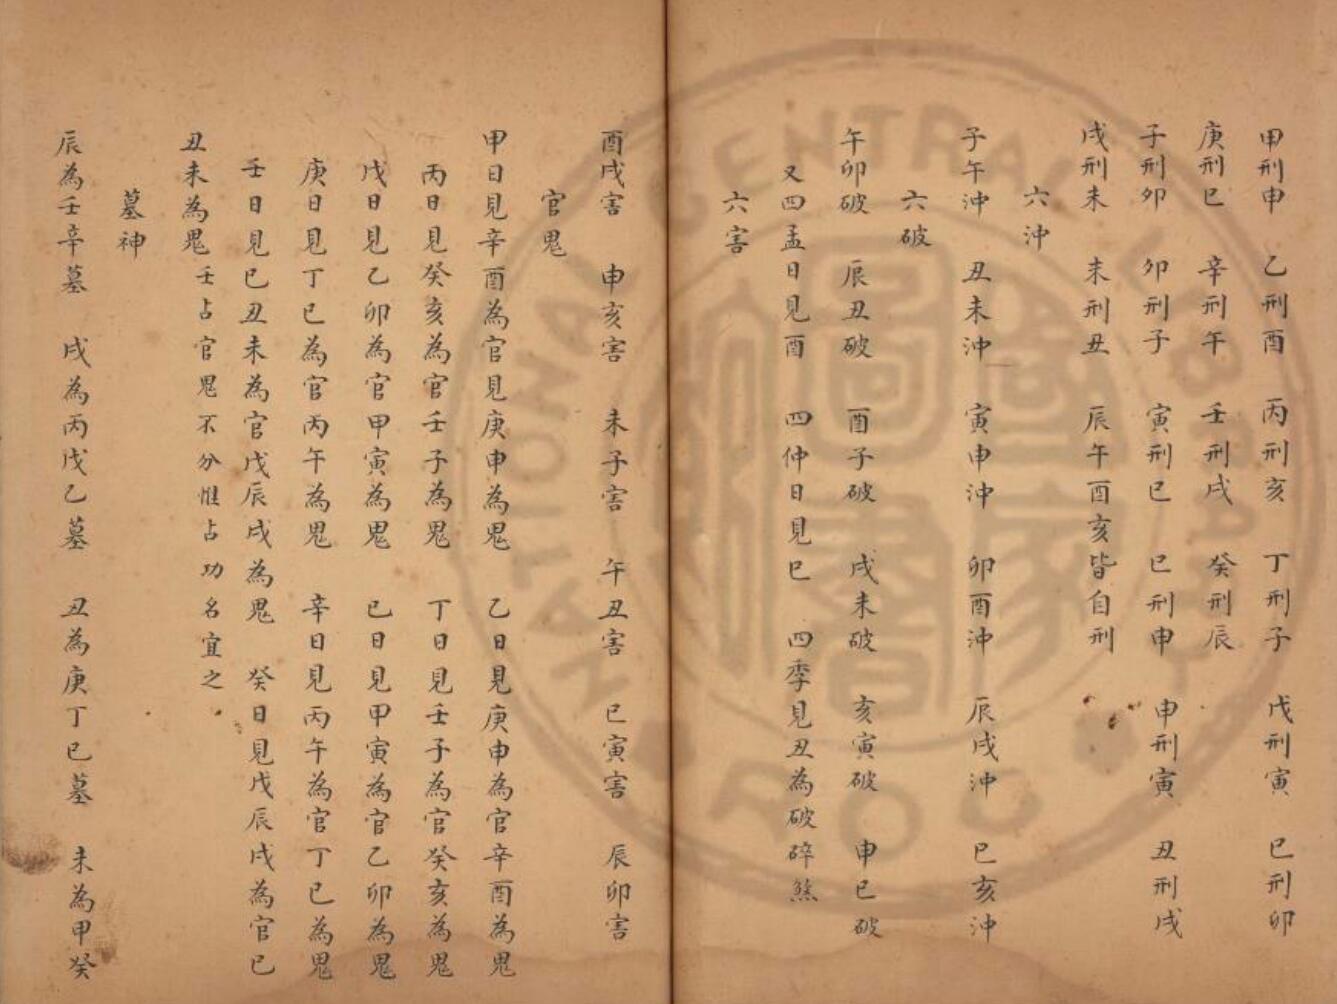 甲刑申 乙刑酉 丙刑亥 丁刑子 戊刑寅 己刑卯
庚刑巳 辛刑午 壬刑戌 癸刑辰
子刑卯 卯刑子 寅刑巳 巳刑申 申刑寅 丑刑戌
戌刑未 未刑丑 辰午酉亥皆自刑
六沖
子午沖 丑未沖 寅申沖 卯酉沖 辰戌沖 巳亥沖
六破
午卯破 辰丑破 酉子破 戌未破 亥寅破 申巳破
又四孟日見酉 四仲日見巳 四季見丑為破碎煞
六害
酉戌害 申亥害 未子害 午丑害 巳寅害 辰卯害
官鬼
甲日見辛酉為官見庚申為鬼 乙日見庚申為官辛酉為鬼
丙日見癸亥為官壬子為鬼 丁日見壬子為官癸亥為鬼
戊日見乙卯為官甲寅為鬼 己日見甲寅為官乙卯為鬼
庚日見丁巳為官丙午為鬼 辛日見丙午為官丁巳為鬼
壬日見己丑未為官戊辰戌為鬼 癸日見戊辰戌為官己
丑未為鬼 壬占官鬼不分惟占功名宜之
墓神
辰為壬辛墓 戌為丙戊乙墓 丑為庚丁己墓 未為甲癸
NATIONAL CENTRAL LIBRARY R O C
國家圖書館